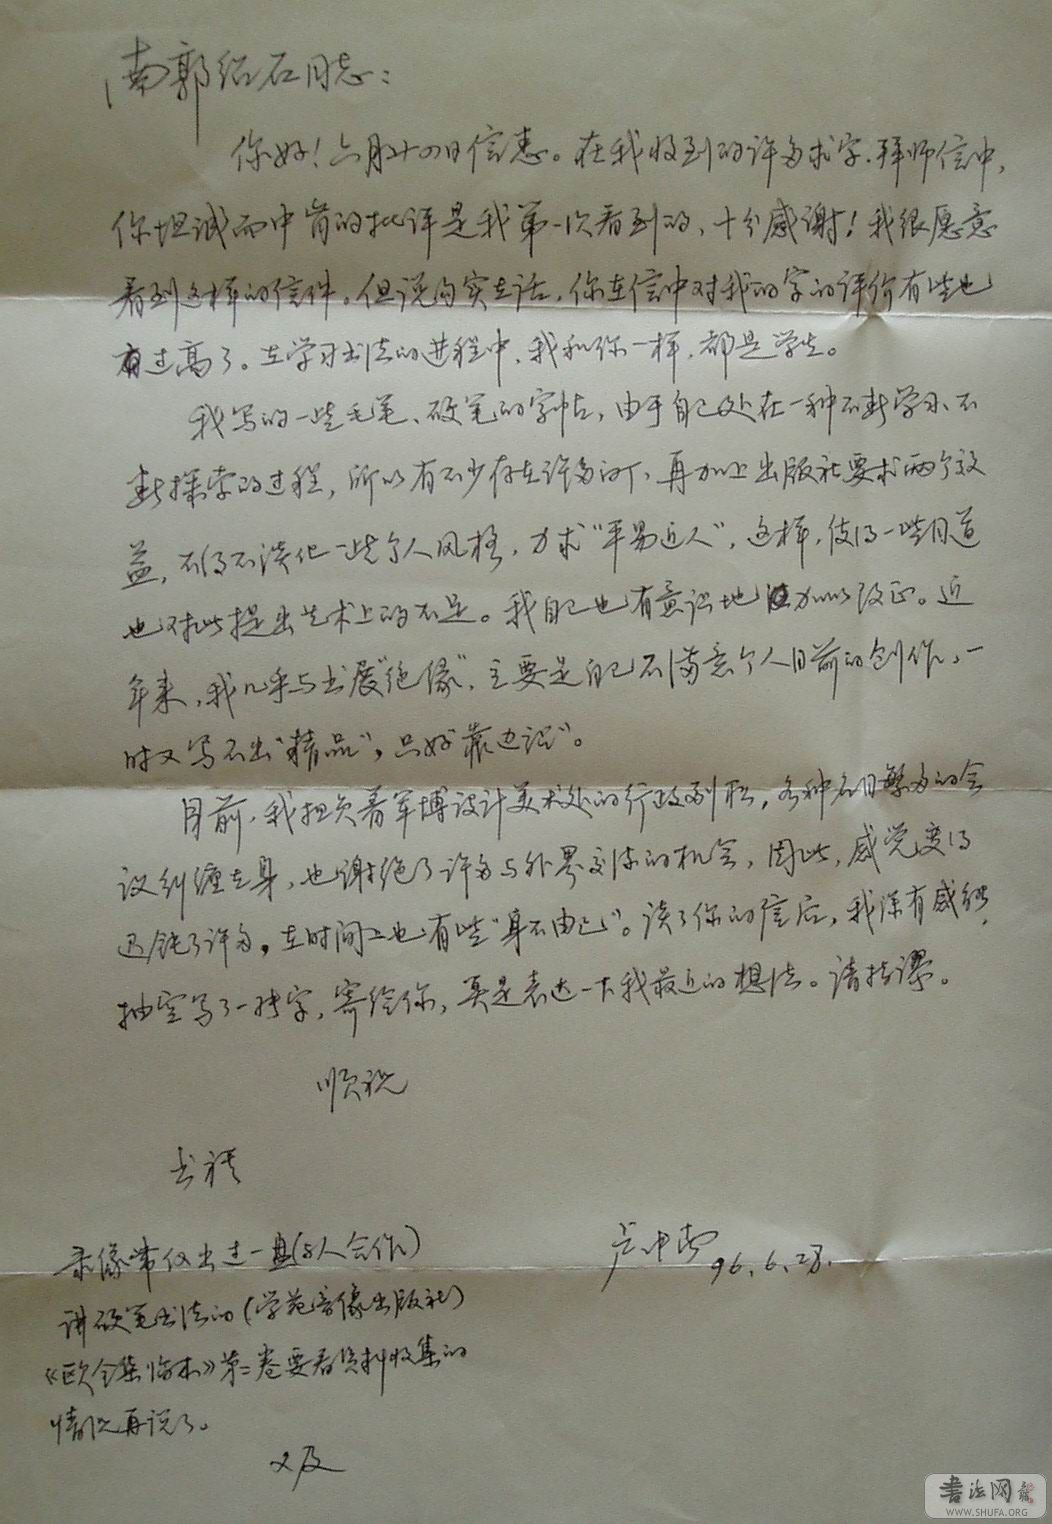 南郭绍石同志：
你好！六月廿四日信悉。在我收到的许多求字、拜师信中，
你坦诚而中肯的批评是我第一次看到的，十分感谢！我很愿意
看到这样的信件。但说句实在话，你在信中对我的字的评价有些也
有过高了。在学习书法的进程中，我和你一样，都是学生。
我写的一些毛笔、硬笔的字帖，由于自己处在一种不断学习、不
断探索的过程，所以有不少存在许多，再加上出版社要求两个效
益，不得不淡化一些个人风格，力求“平易近人”，这样，使得一些同道
也对此提出艺术上的不足。我自己也有意识地加以改正。近
年来，我几乎与书展“绝缘”，主要是自己不满意个人目前的创作，一
时又写不出“精品”，只好“靠边站”。
目前，我担负着军博设计美术处的行政副职，各种名目繁多的会
议纠缠在身，也谢绝了许多与外界交流的机会，因此，感觉变得
迟钝了许多，在时间上也有些“身不由己”。读了你的信后，我深有感触，
抽空写了一张字，寄给你，算是表达一下我最近的想法。请指谬。
顺祝
书祺
卢中南 96.6.28.
录像带仅出过一盘（与人合作）
讲硬笔书法的（学苑音像出版社）
《欧全集临本》第二卷要看资料收集的
情况再说了。
又及
書法网
WWW.SHUFA.ORG